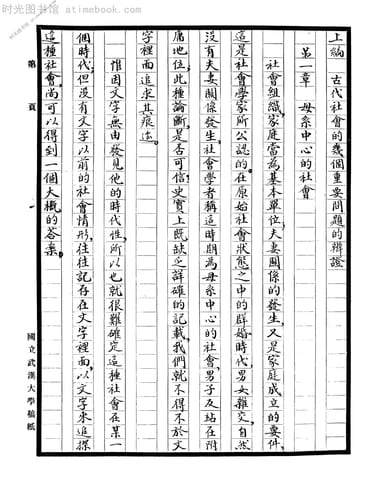 时光图书馆 atimebook.com
上編　古代社會的幾個重要問題的辯證
第一章　母系中心的社會
社會組織，家庭當為基本單位；夫妻關係的發生，又是家庭成立的要件，
這是社會學家所公認的。在原始社會狀態之中的群婚時代，男女雜交，自然
沒有夫妻關係發生。社會學者稱這時期為母系中心的社會，男子反站在附
庸地位；此種論斷，是否可信；史實上既缺乏詳確的記載，我們就不得不於文
字裡面追求其痕迹。
惟因文字無由發見他的時代性，所以也就很難確定這種社會在某一
個時代，但沒有文字以前的社會情形，往往記存在文字裡面，以文字來追探
這種社會，尚可以得到一個大概的答案。
第　頁
國立武漢大學稿紙